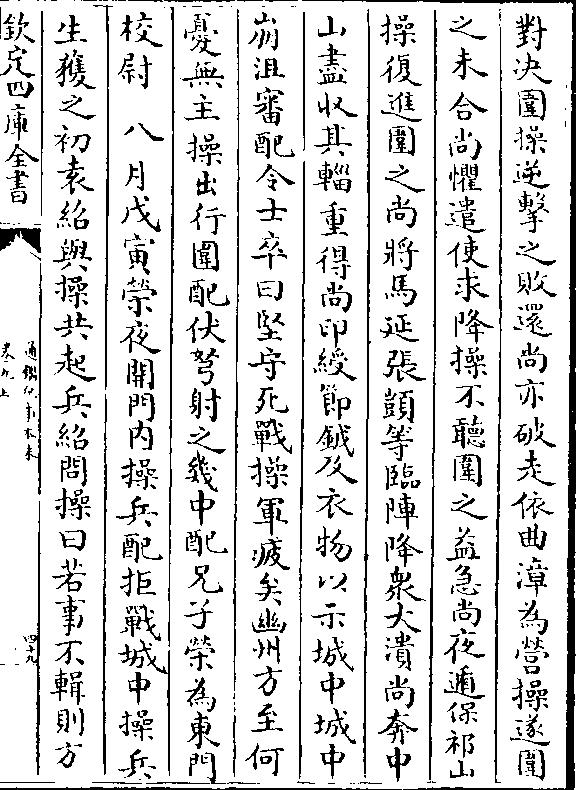 對决圍操逆擊之敗還尚亦破走依曲漳為營操遂圍
之未合尚懼遣使求降操不聽圍之益急尚夜遁保祁山
操復進圍之尚將馬延張顗等臨陣降衆大潰尚奔中
山盡收其輜重得尚印綬節鉞及衣物以示城中城中
崩沮審配令士卒曰堅守死戰操軍疲矣幽州方至何
憂無主操出行圍配伏弩射之幾中配兄子榮為東門
校尉 八月戊寅榮夜開門内操兵配拒戰城中操兵
生獲之初袁紹與操共起兵紹問操曰若事不輯則方
欽定四庫全書
通鑑紀事本末
卷九上
四十九